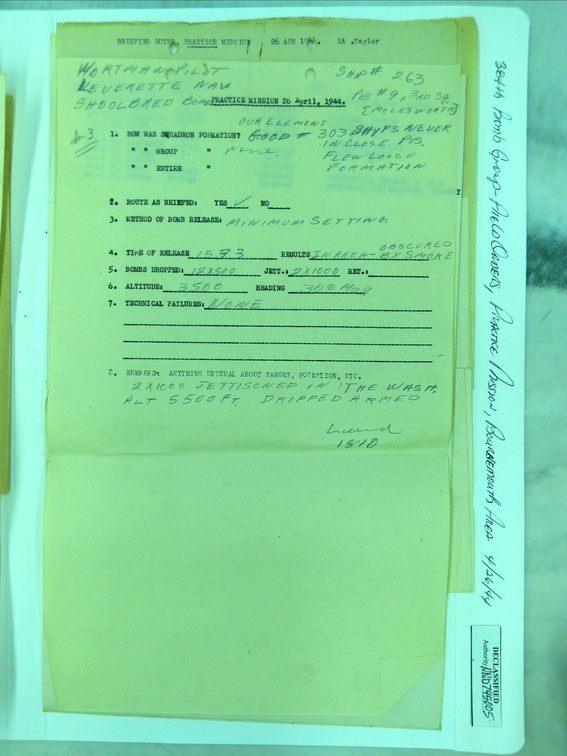 BRIEFING NOTES PRACTICE MISSION 26 APR 1944. 1A .Taylor
WORTMAN PILOT
LEVERETTE NAV
SHOOLBRED BOMB
SHIP # 263
POS # 9, 3RD SQ.
[MOLESWORTH]
PRACTICE MISSION 26 April, 1944.
OUR ELEMENT
1. HOW WAS SQUADRON FORMATION? GOOD # 303 SHIPS NEVER
IN CLOSE POS.
" " GROUP " None
FLEW LOOSE
" " ENTIRE "
FORMATION
2. ROUTE AS BRIEFED: YES ✓ NO
3. METHOD OF BOMB RELEASE: MINIMUM SETTING
4. TIME OF RELEASE RESULTS IN AREA - OBSCURED BY SMOKE
5. BOMBS DROPPED: 12X500 JETT.: 2X1000 RET.:
6. ALTITUDE: 3500 HEADING 300 Mag
7. TECHNICAL FAILURES: NONE
8. REMARKS: ANYTHING UNUSUAL ABOUT TARGET, FORMATION, ETC.
2X1000 JETTISONED IN THE WASH.
ALT 5500 FT. DROPPED ARMED
1810
384th Bomb Group - Field Orders, Practice Mission, Bournemouth Area 4/26/44
DECLASSIFIED
Authority NND 745005